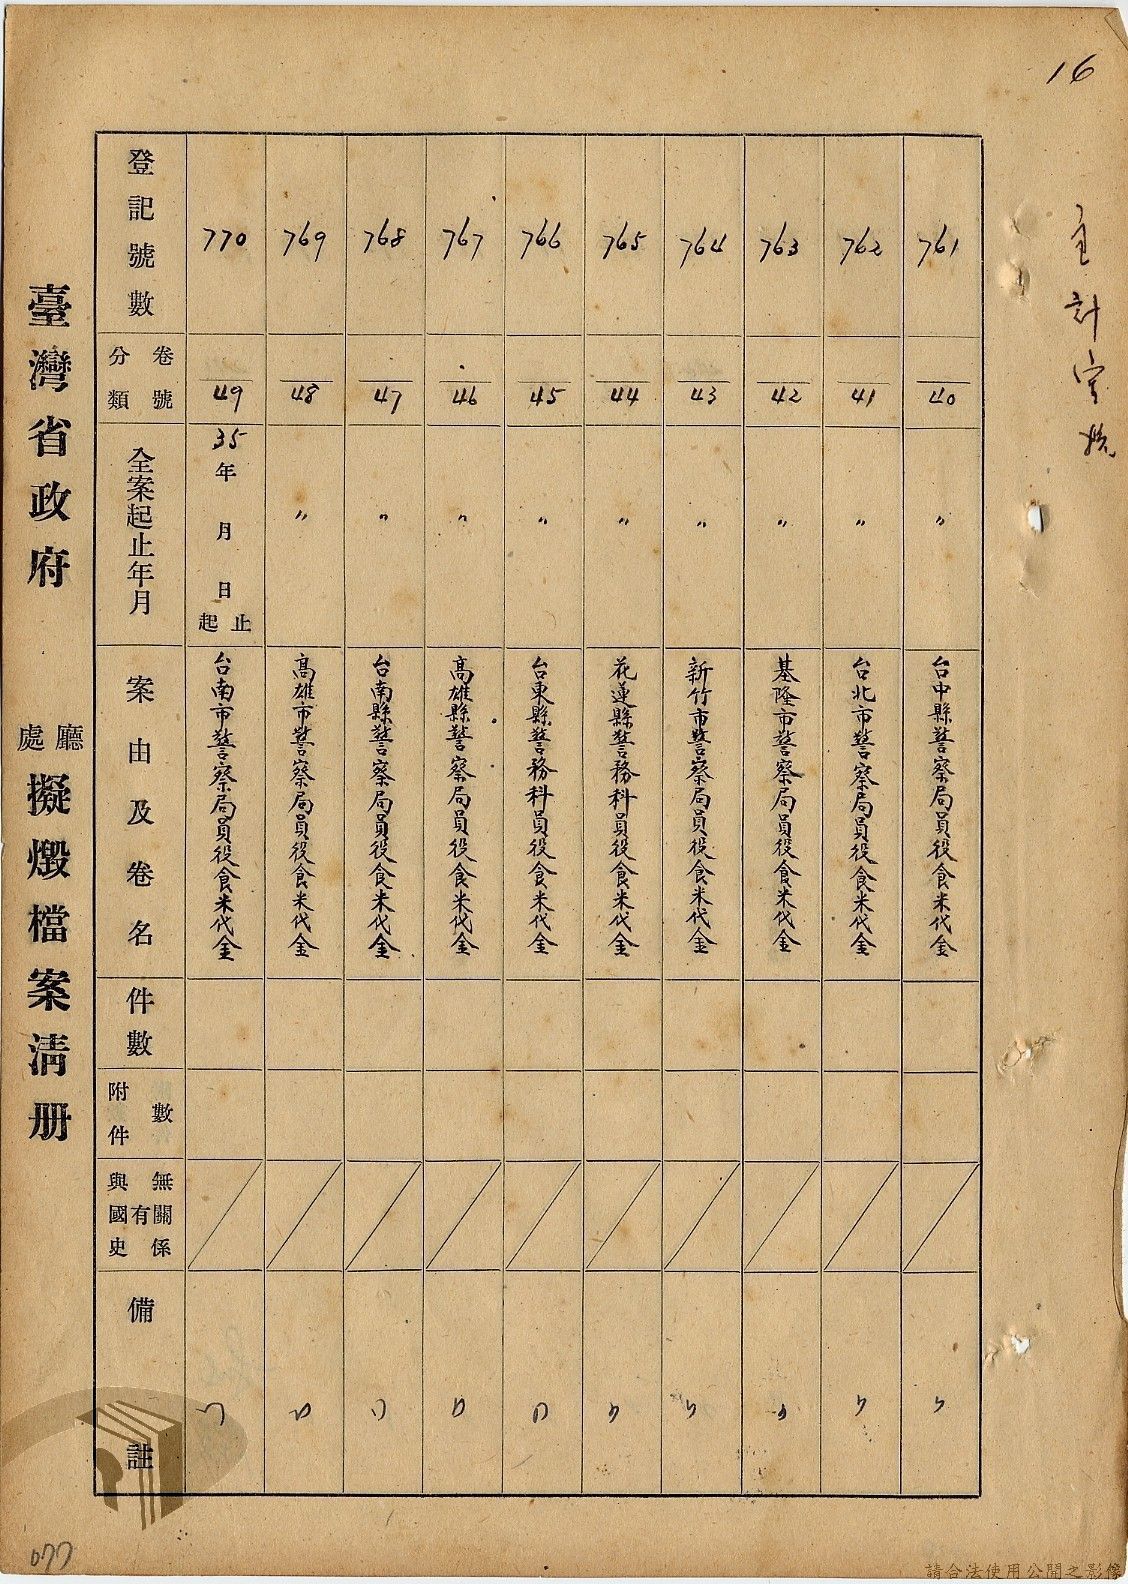 16
主計室
臺灣省政府
廳處
擬燬檔案清册
登記號數
卷號分類
全案起止年月
案由及卷名
件數
附件數
與國史有無關係
備註
770
49
35年 月 日起止
台南市警察局員役食米代金
769
48
〃
高雄市警察局員役食米代金
768
47
〃
台南縣警察局員役食米代金
767
46
〃
高雄縣警察局員役食米代金
766
45
〃
台東縣警務科員役食米代金
765
44
〃
花蓮縣警務科員役食米代金
764
43
〃
新竹市警察局員役食米代金
763
42
〃
基隆市警察局員役食米代金
762
41
〃
台北市警察局員役食米代金
761
40
〃
台中縣警察局員役食米代金
077
請合法使用公開之影像